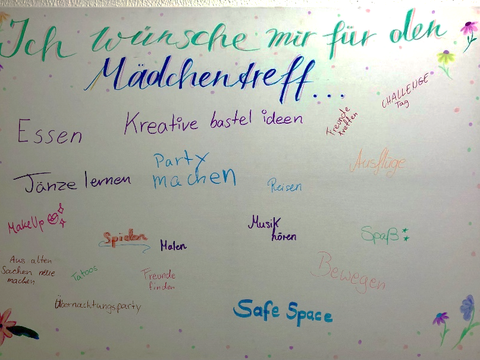 Ich wünsche mir für den
Mädchentreff...
CHALLENGE
Tag
Freunde
treffen
Kreative bastel ideen
Essen
Party
machen
Ausflüge
Tänze lernen
Reisen
MakeUp
Musik
hören
Spaß
Spielen
Malen
Aus alten
Sachen neue
machen
Tatoos
Freunde
finden
Bewegen
Übernachtungsparty
Safe Space